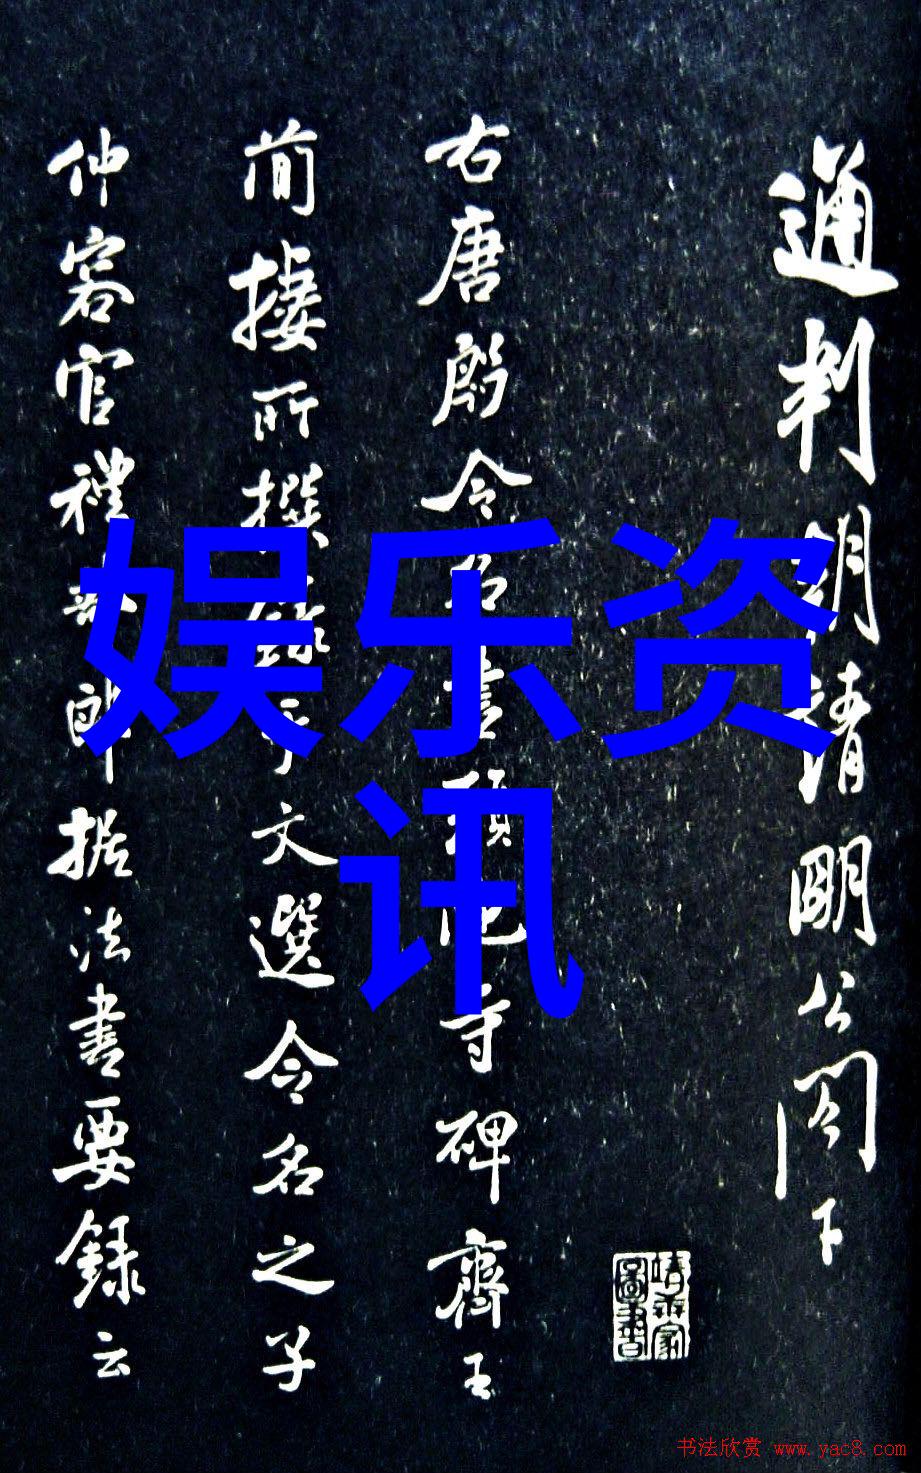 通判請明公閣下
右唐殷令名書頭陁寺碑齊王
簡棲所撰錄于文選令名之子
仲容官禮部郎据法書要録云
娱乐资
讯
书法欣赏 www.yac8.com